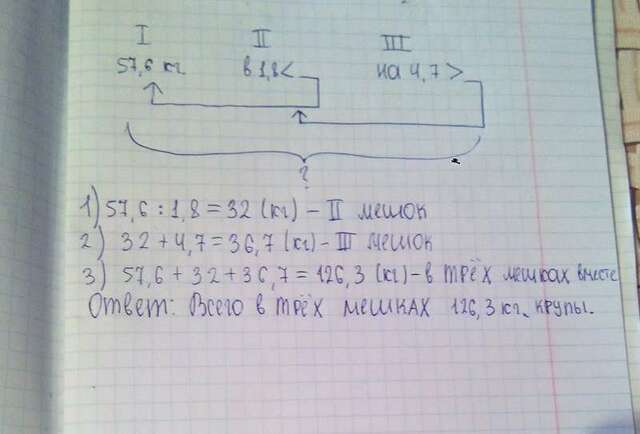 I II III
57,6 кг в 1,8< на 4,7>
?
1) 57,6 : 1,8 = 32 (кг) – II мешок
2) 32 + 4,7 = 36,7 (кг) – III мешок
3) 57,6 + 32 + 36,7 = 126,3 (кг) – в трёх мешках вместе
Ответ: Всего в трёх мешках 126,3 кг крупы.